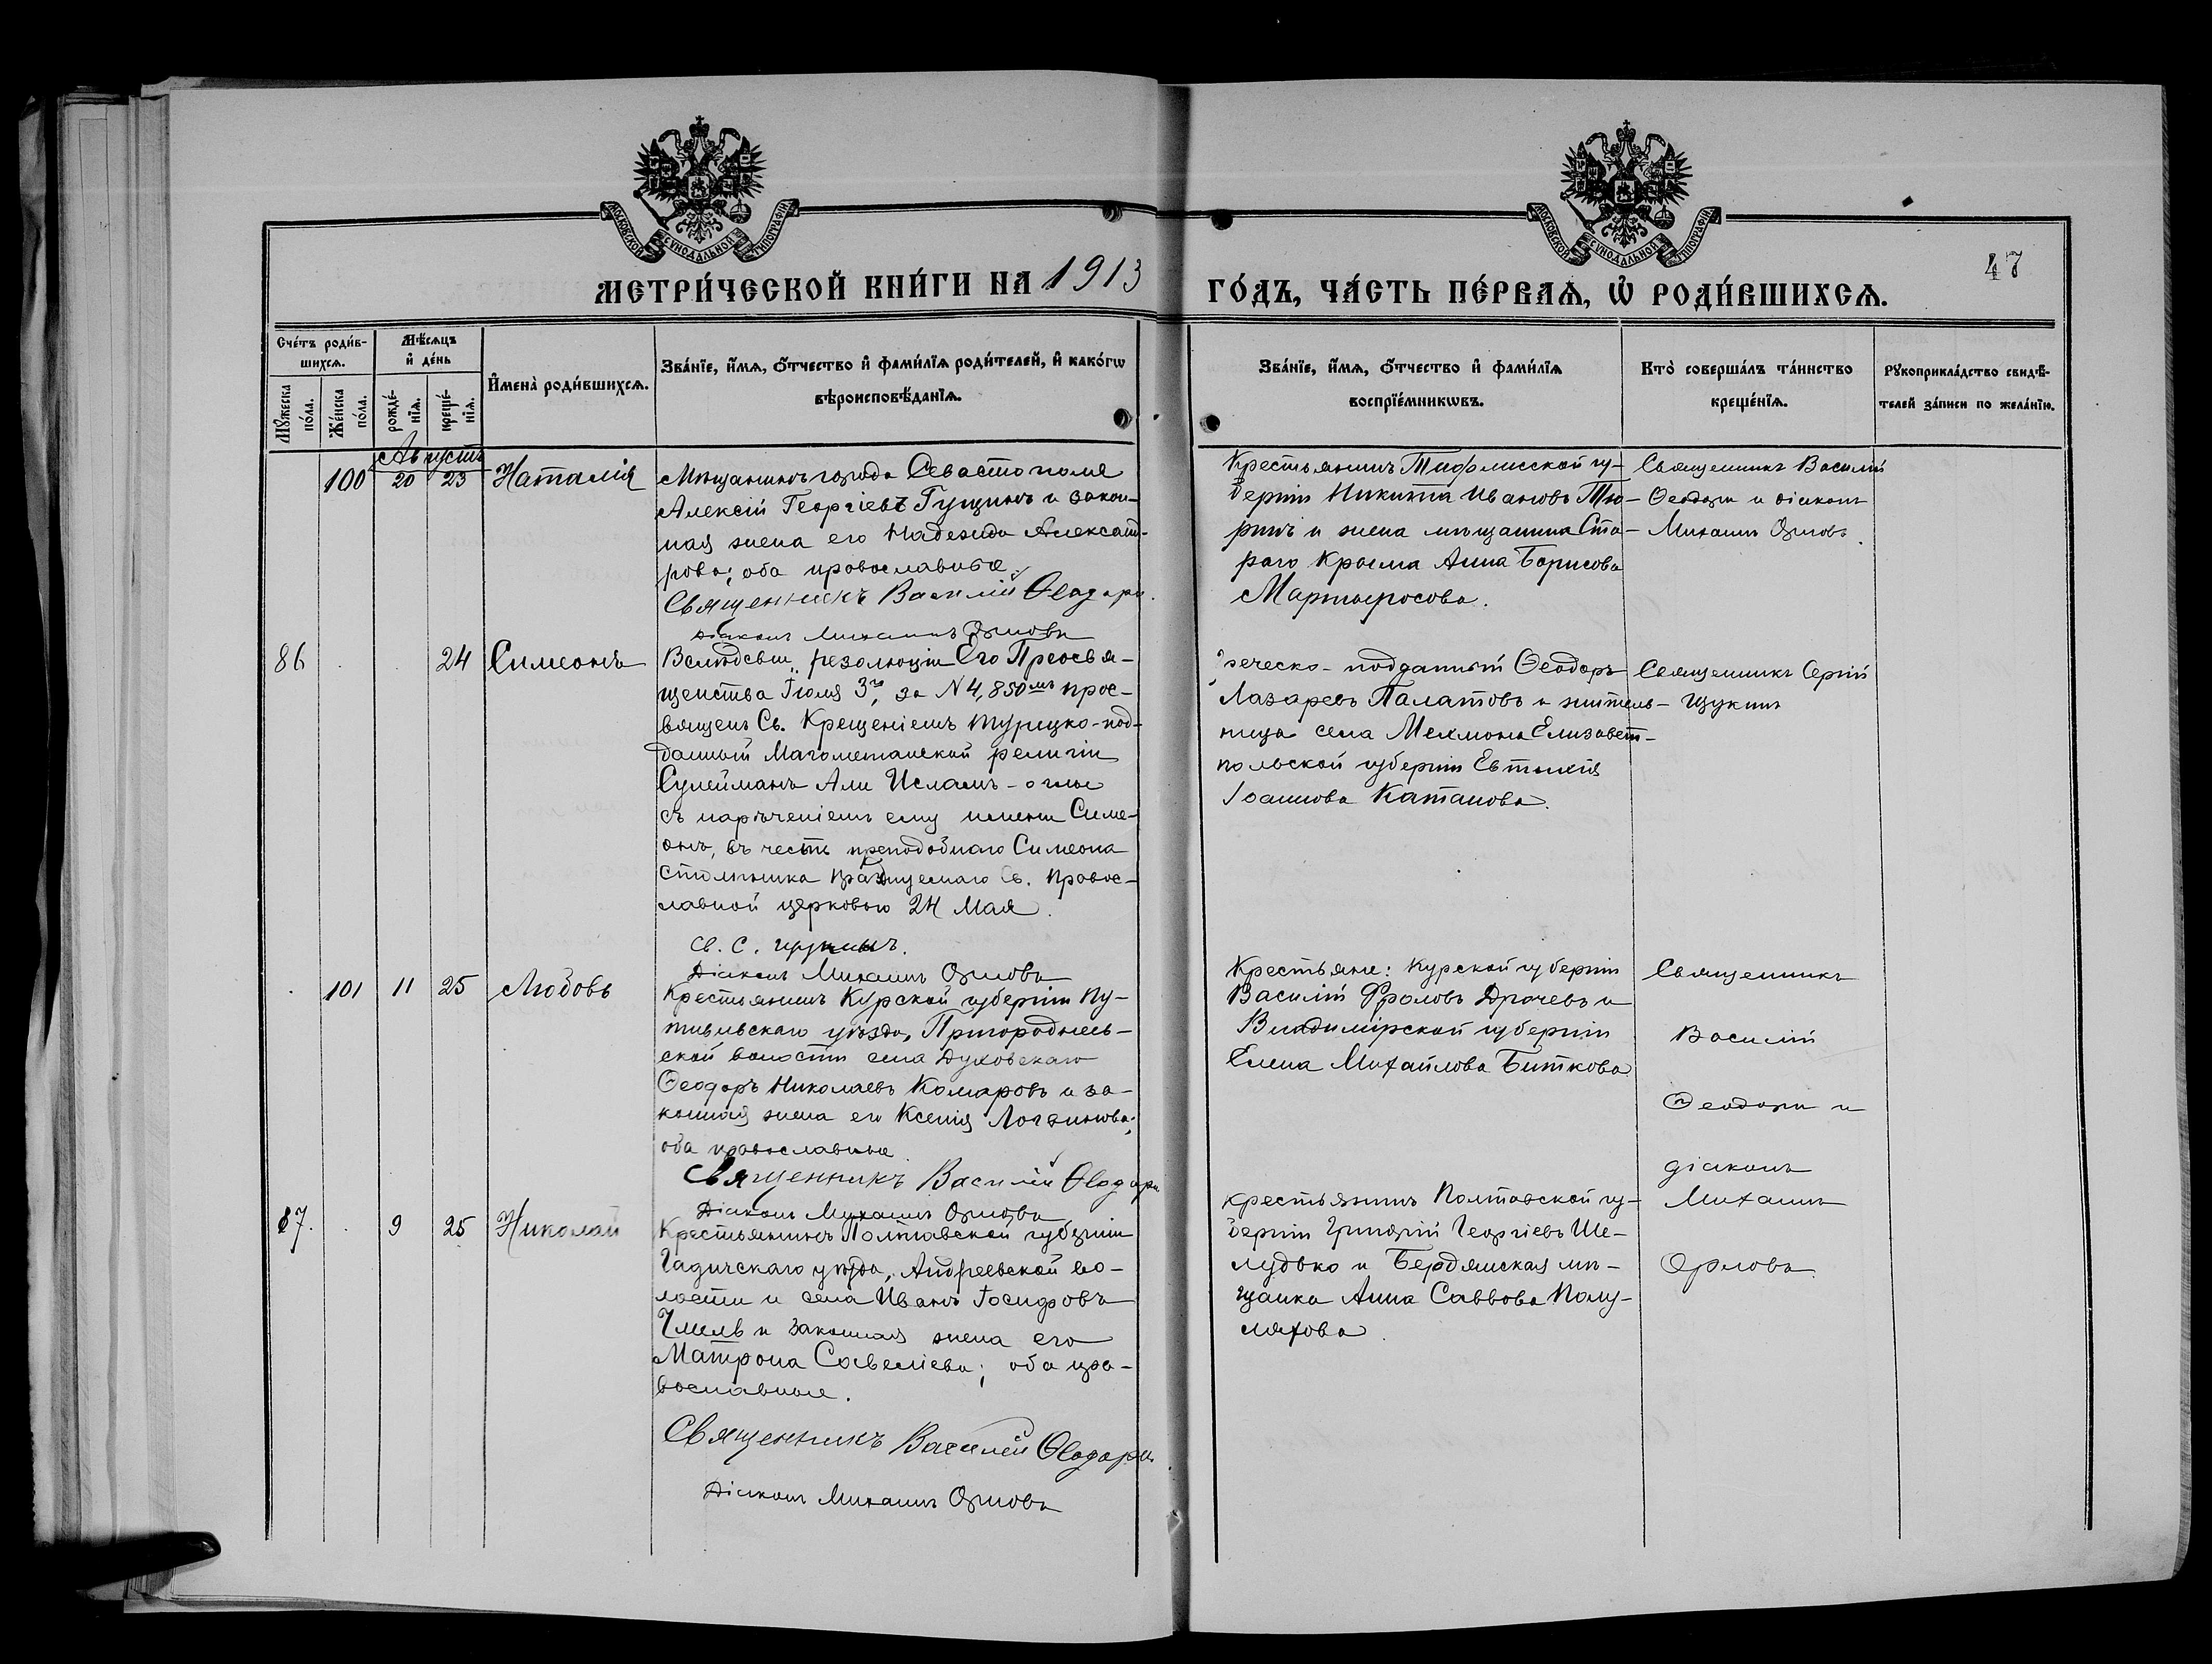 МОСКОВСКОЙ СѴНОДАЛЬНОЙ ТИПОГРАФІИ
МОСКОВСКОЙ СѴНОДАЛЬНОЙ ТИПОГРАФІИ
МЕТРИ́ЧЕСКОЙ КНИ́ГИ НА 1913
ГО́ДЪ, ЧА́СТЬ ПЕ́РВАѦ, Ѽ РОДИ́ВШИХСѦ.
47
Сче́тъ роди́в-
шихсѧ.
Мꙋ́жеска по́ла.
Же́нска по́ла.
Мѣ́сѧцъ
и҆ де́нь
рожде́-
нїѧ.
креще́-
нїѧ.
И҆мена̀ роди́вшихсѧ.
Зва́нїе, и҆́мѧ, ѻ҆́тчество и҆ фами́лїѧ роди́телей, и҆ како́гѡ
вѣроисповѣ́данїѧ.
Зва́нїе, и҆́мѧ, ѻ҆́тчество и҆ фами́лїѧ
воспрїе́мникѡвъ.
Кто̀ соверша́лъ та́инство
креще́нїѧ.
Рꙋкоприкла́дство свидѣ́-
телей за́писи по жела́нїю.
Августъ
100 20 23 Наталія
Мѣщанинъ города Севастополя
Алексій Георгіевъ Гущинъ и закон-
ная жена его Надежда Александ-
рова; оба православные.
Священникъ Василій Ѳеодори.
Діаконъ Михаилъ Орловъ
Крестьянинъ Тифлисской гу-
берніи Никита Ивановъ Тю-
ринъ и жена мѣщанина Ста-
раго Крыма Анна Борисова
Мартыросова.
Священникъ Василій
Ѳеодори и діаконъ
Михаилъ Орловъ.
86 24 Симеонъ
Вслѣдствіе резолюціи Его Преосвя-
щенства Іюля 3го за N 4,850мъ прос-
вященъ Св. Крещеніемъ турецко-под-
данный Магометанской религіи
Сулейманъ Али Исламъ-оглы
съ нареченіемъ ему имени Симе-
онъ, въ честь преподобнаго Симеона
Столпника празднуемаго Св. Правос-
лавной церковью 24 Мая.
Св. С. Щукинъ.
Діаконъ Михаилъ Орловъ
Греческо-подданный Ѳеодоръ
Лазаревъ Палатовъ и житель-
ница села Мехмана Елизавет-
польской губерніи Евтихія
Іоаннова Катанова.
Священникъ Сергій
Щукинъ
101 11 25 Любовь
Крестьянинъ Курской губерніи Пу-
тивльскаго уѣзда, Пригороднень-
ской волости села Духовскаго
Ѳеодоръ Николаевъ Комаровъ и за-
конная жена его Ксенія Логвинова;
оба православные
Священникъ Василій Ѳеодори
Діаконъ Михаилъ Орловъ
Крестьяне: Курской губерніи
Василій Фроловъ Драчевъ и
Владимірской губерніи
Елена Михайлова Биткова
Священникъ
Василій
Ѳеодори и
діаконъ
Михаилъ
Орловъ.
87. 9 25 Николай
Крестьянинъ Полтавской губерніи
Гадячскаго уѣзда, Андреевской во-
лости и села Иванъ Іосифовъ
Чмель и законная жена его
Матрона Савеліева; оба пра-
вославные.
Священникъ Василій Ѳеодори
Діаконъ Михаилъ Орловъ
крестьянинъ Полтавской гу-
берніи Григорій Георгіевъ Ше-
лудько и Бердянская мѣ-
щанка Анна Саввова Полу-
ляхова.